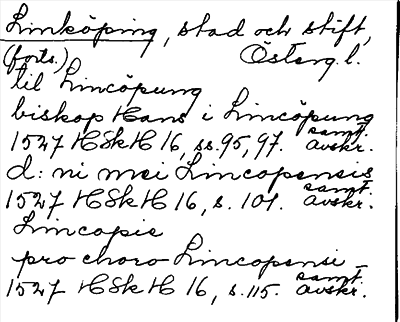 Linköping, stad och stift,
(forts.) Österg. l.
til Lincöpung
biskop Hans i Lincöpung
1527 HSkH 16, ss. 95, 97. samt. avskr.
d:ni mei Lincopensis
1527 HSkH 16, s. 101. samt. avskr.
Lincopie
pro choro Lincopensi –
1527 HSkH 16, s. 115. samt. avskr.